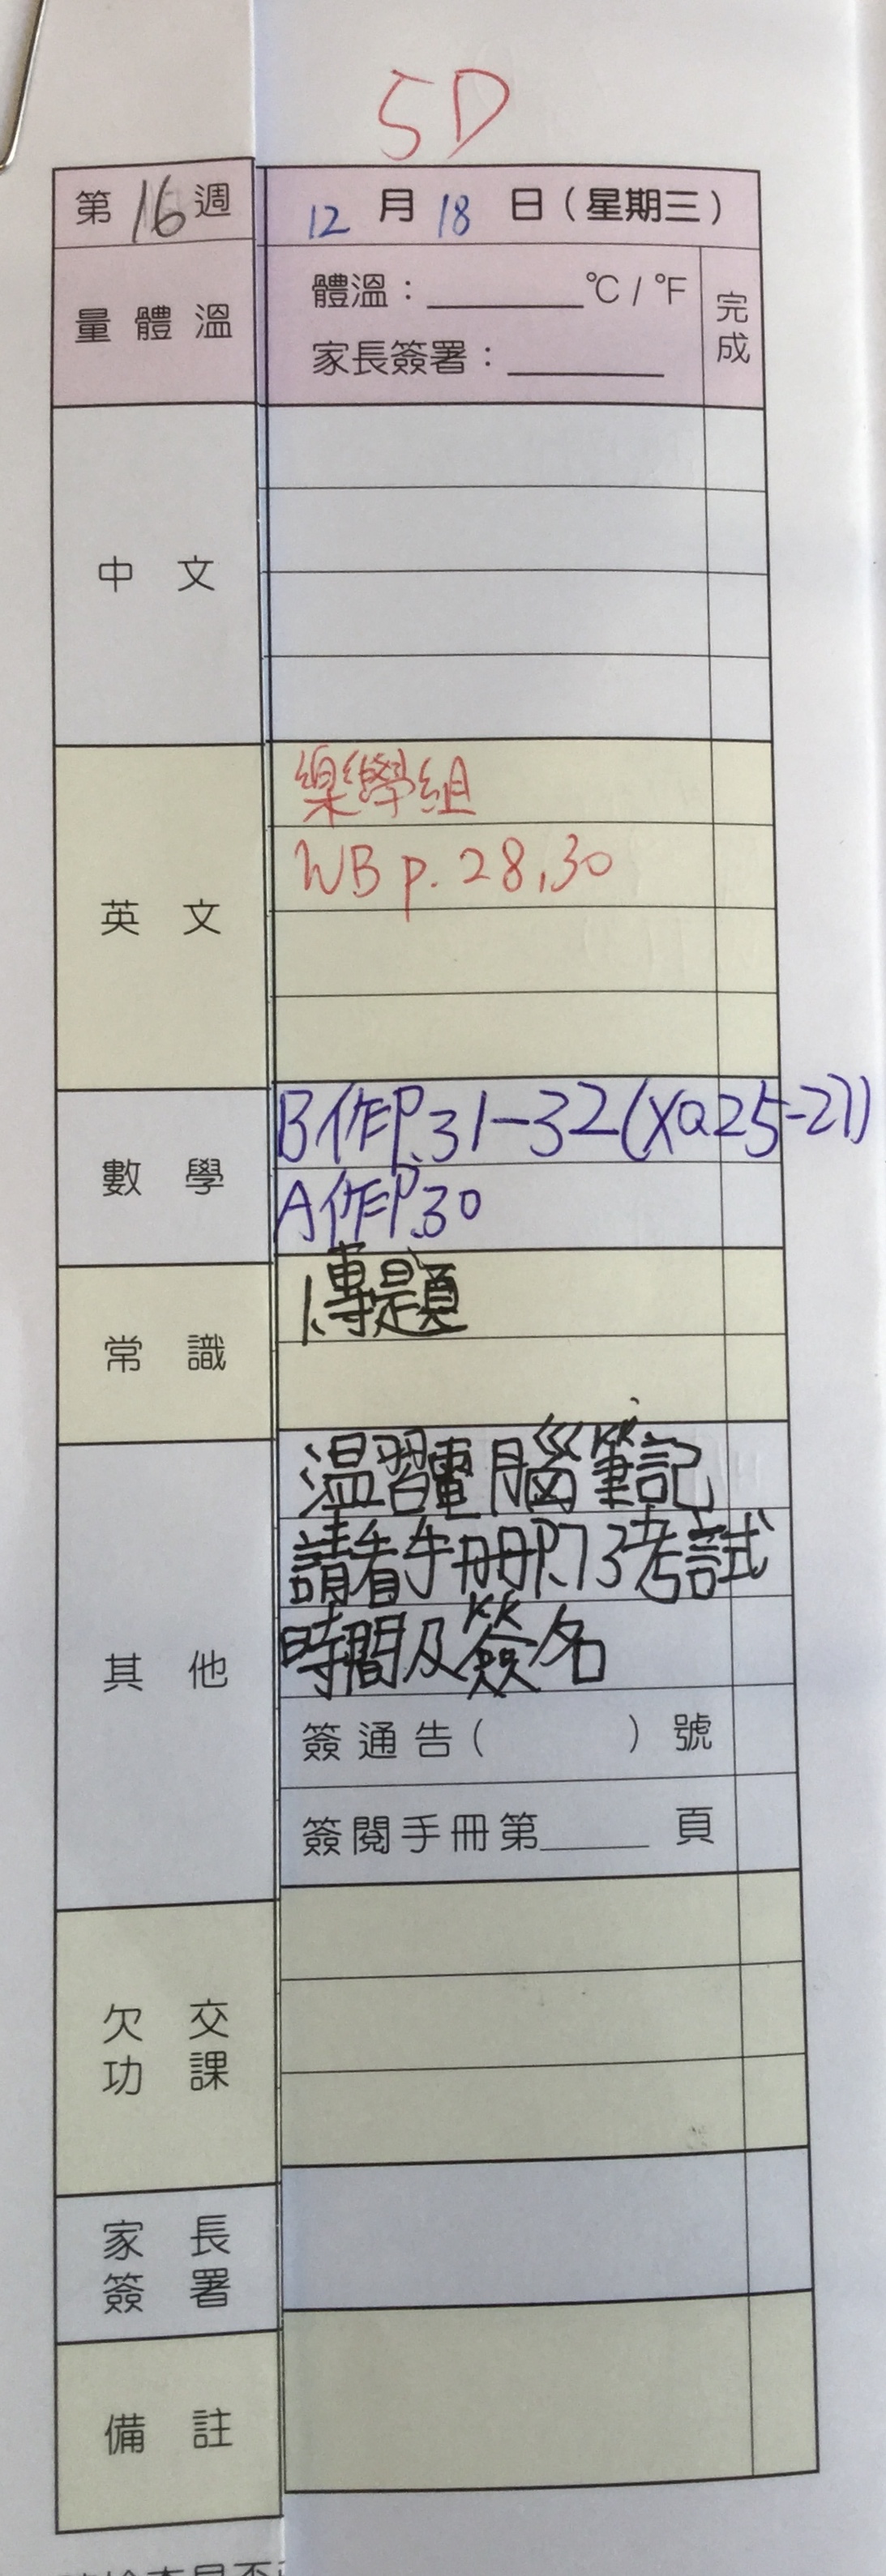 5D
第16週
12月18日（星期三）
量體溫
體溫：______℃/℉
家長簽署：______
完成
中文
英文
樂學組
WB p.28,30
數學
B作P.31-32(XQ25-27)
A作P.30
常識
1.專題
其他
溫習電腦筆記
請看手冊P.73考試
時間及簽名
簽通告（　　）號
簽閱手冊第______頁
欠交功課
家長簽署
備註